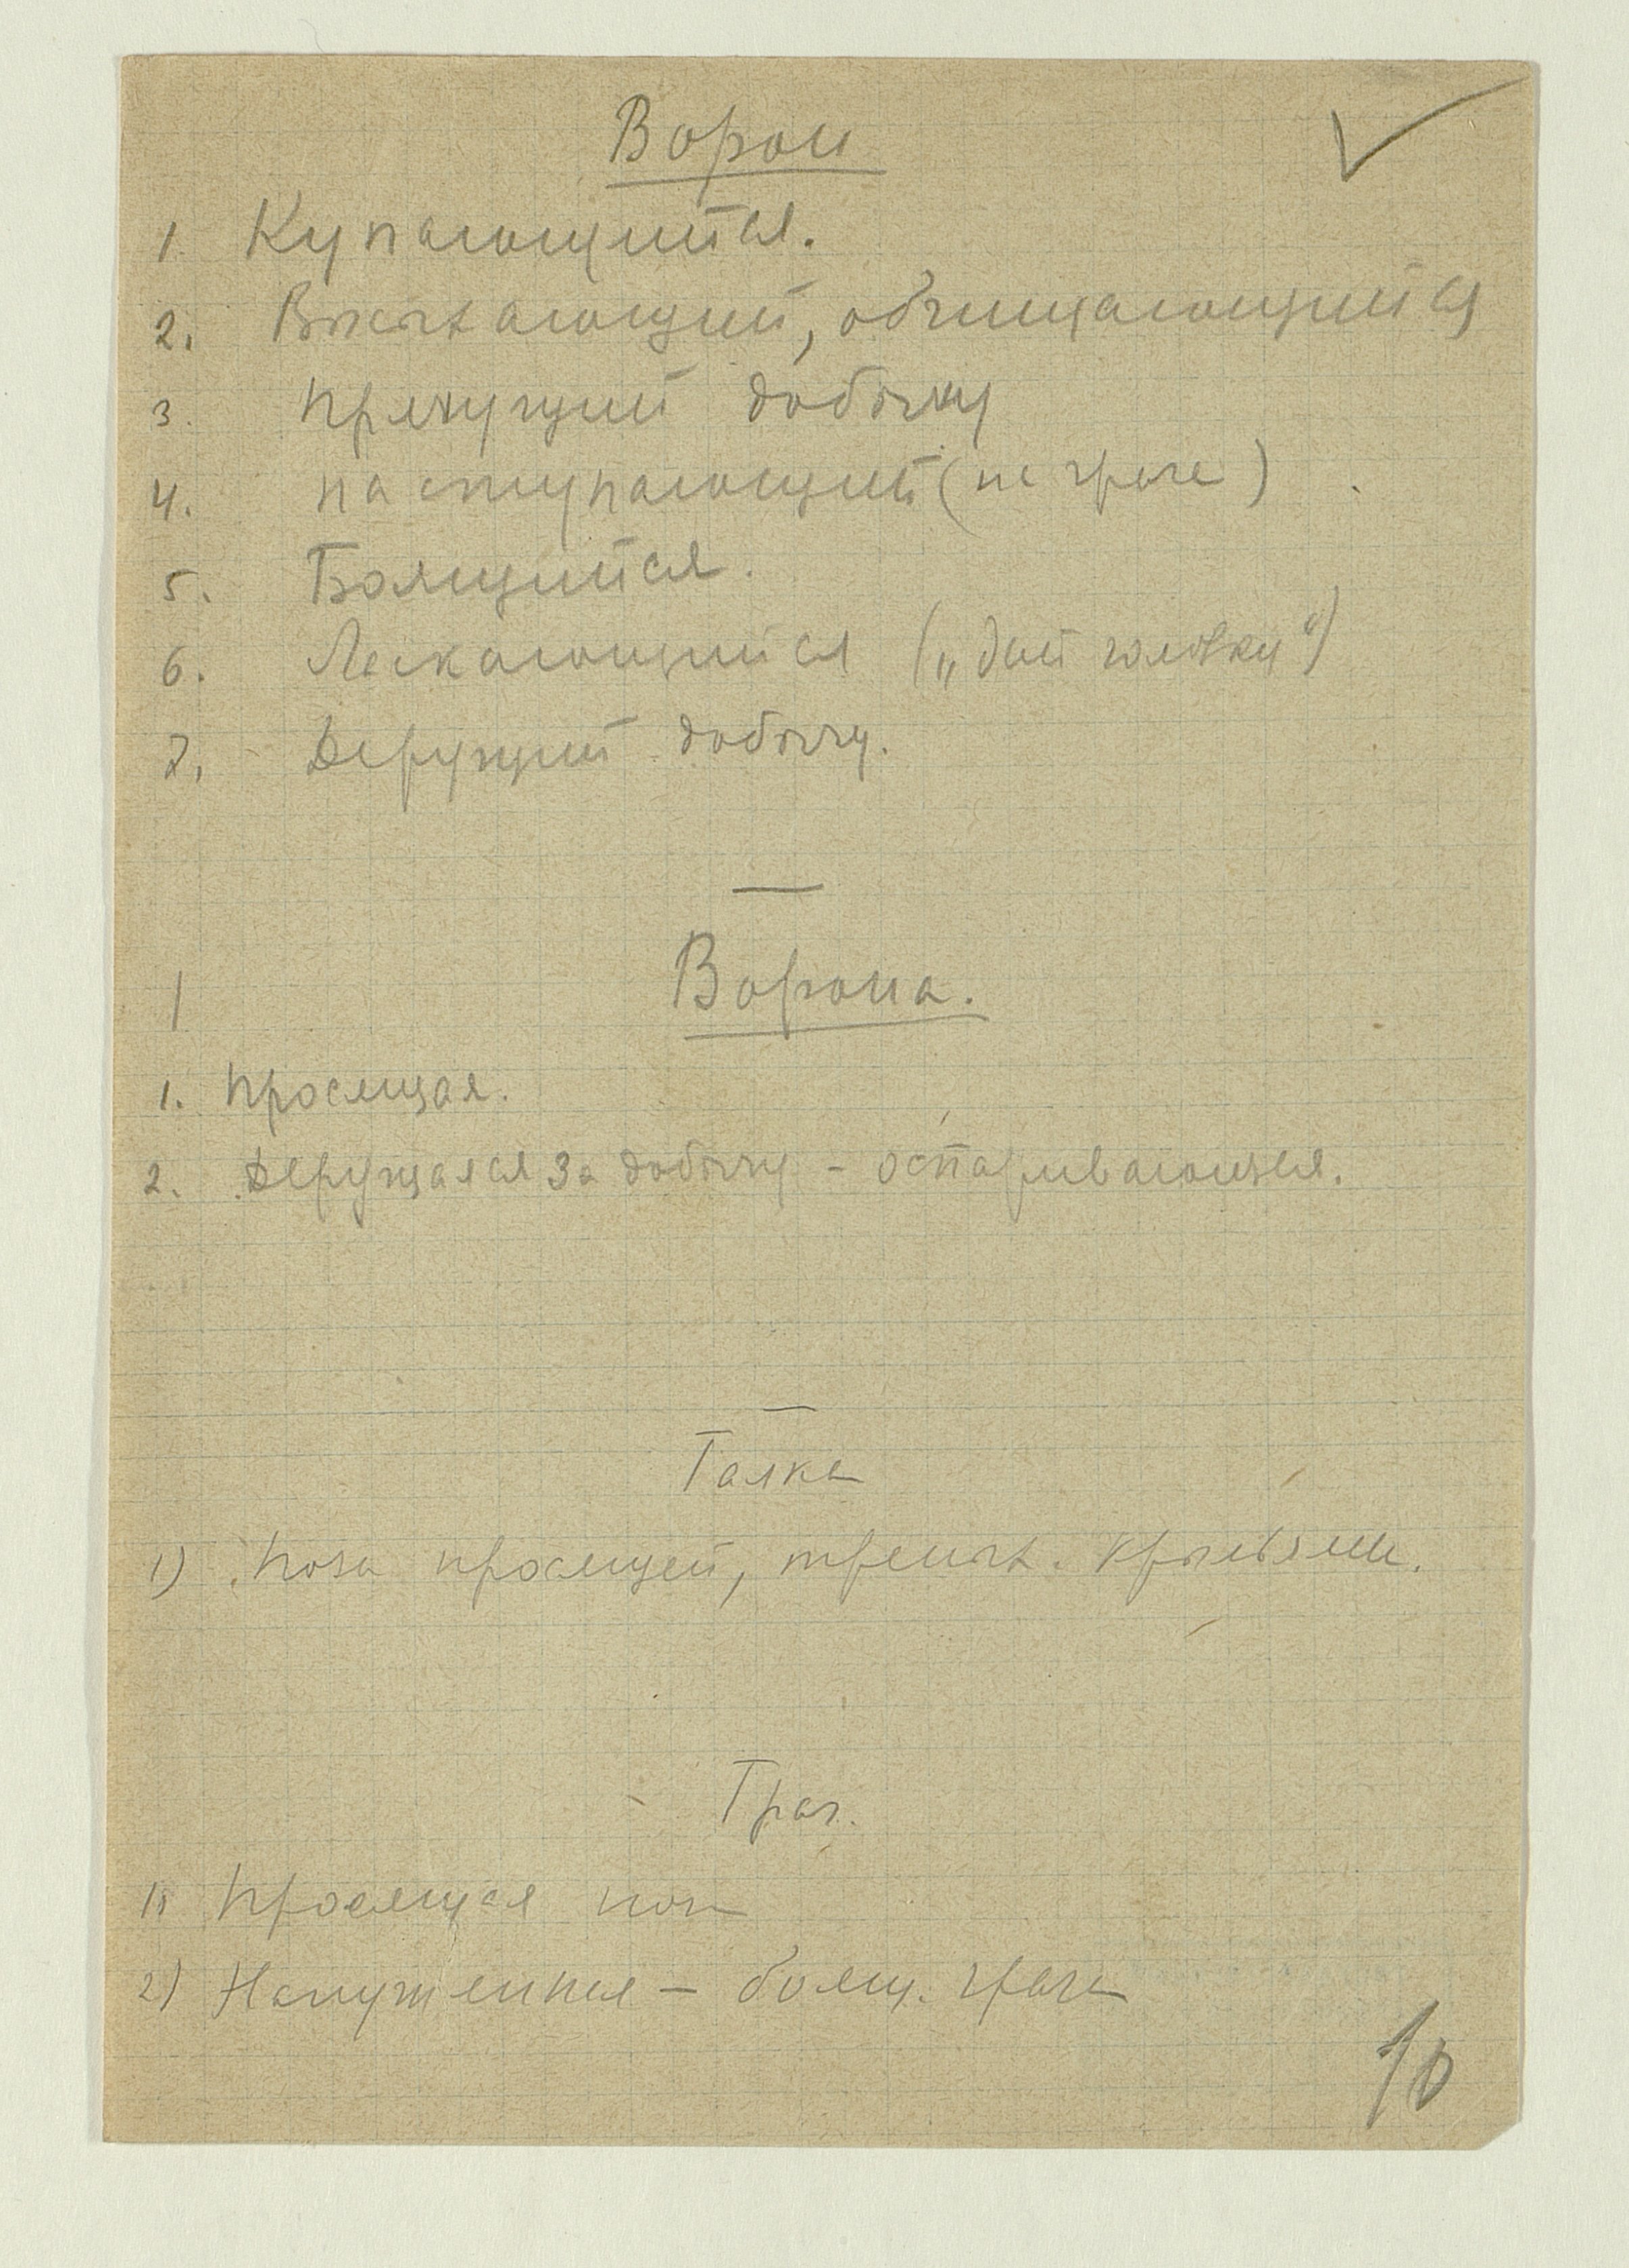 Ворон
1. Купающийся.
2. обчищающийся
3. Прячущий добычу
4. Наступающий (на грача)
5. Боящийся.
6. Ласкающийся („дай головку“)
7. Дерущий добычу.
Ворона.
1. Просящая.
2. Дерущаяся за добычу - оспаривающая.
Галка
1) Поза просящей, трепых. крыльями.
Грач.
1) Просящая поза
2) Напуженная — боящ. грача
10